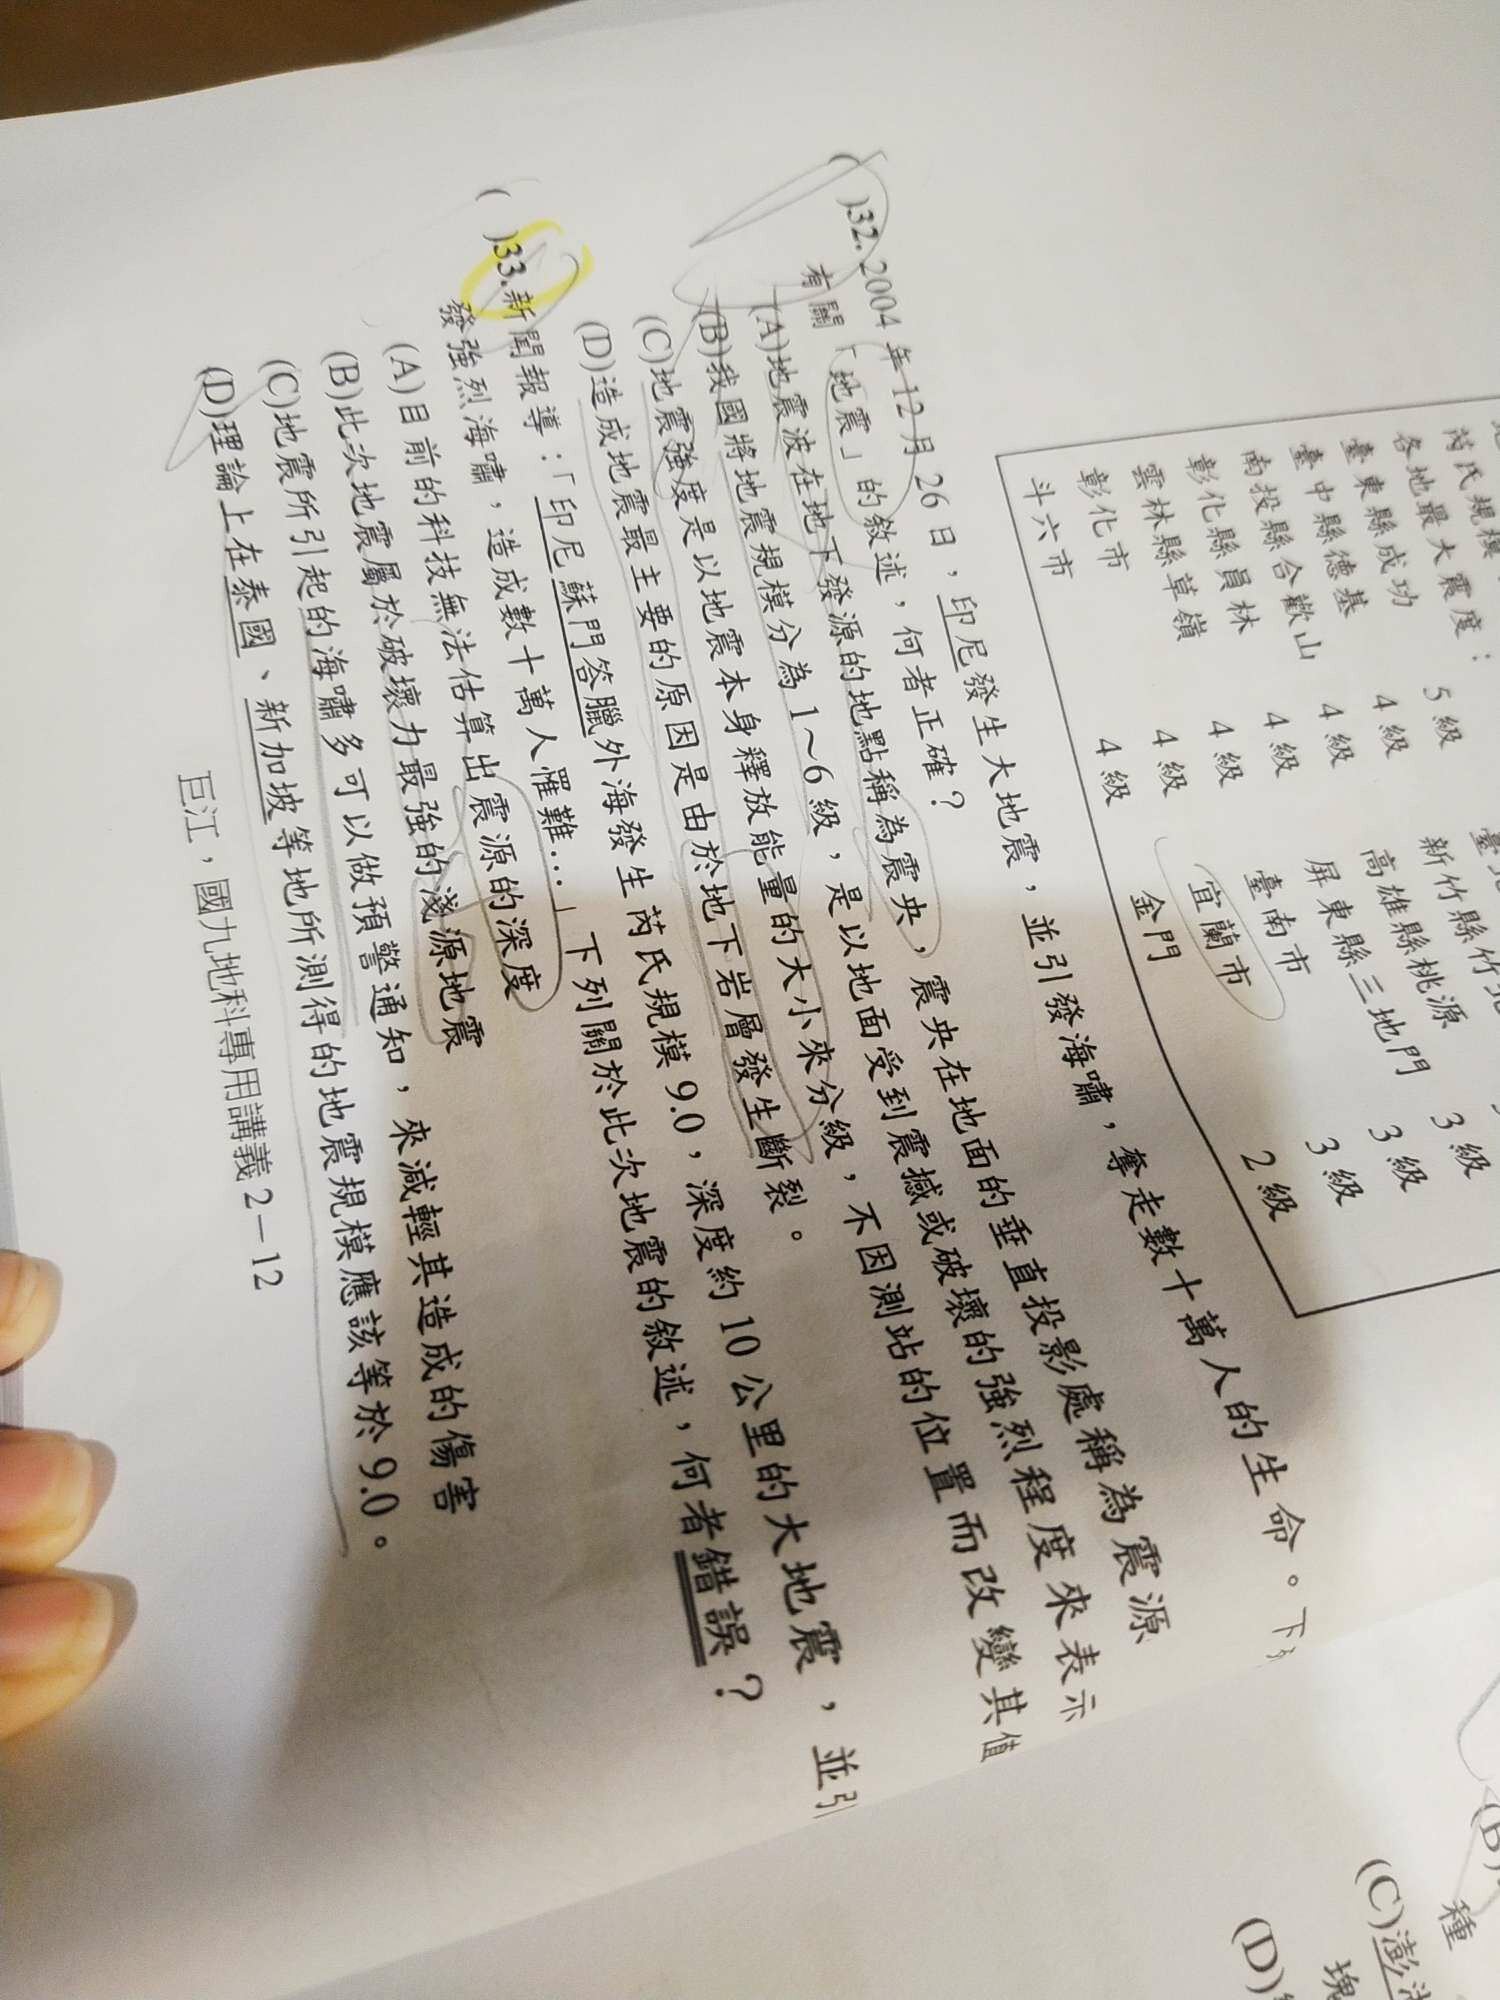 芮氏規模
各地最大震度：
臺東縣成功 5級
臺中縣德基 4級
南投縣合歡山 4級
彰化縣員林 4級
雲林縣草嶺 4級
彰化市 4級
斗六市 4級
新竹縣竹北
高雄縣桃源 3級
屏東縣三地門 3級
臺南市 3級
宜蘭市 2級
金門
( )32. 2004年12月26日，印尼發生大地震，並引發海嘯，奪走數十萬人的生命。下列
有關「地震」的敘述，何者正確？
(A)地震波在地下發源的地點稱為震央，震央在地面的垂直投影處稱為震源
(B)我國將地震規模分為1～6級，是以地面受到震撼或破壞的強烈程度來表示
(C)地震強度是以地震本身釋放能量的大小來分級，不因測站的位置而改變其值
(D)造成地震最主要的原因是由於地下岩層發生斷裂。
( )33.新聞報導：「印尼蘇門答臘外海發生芮氏規模9.0，深度約10公里的大地震，並引
發強烈海嘯，造成數十萬人罹難…」下列關於此次地震的敘述，何者錯誤？
(A)目前的科技無法估算出震源的深度
(B)此次地震屬於破壞力最強的淺源地震
(C)地震所引起的海嘯多可以做預警通知，來減輕其造成的傷害
(D)理論上在泰國、新加坡等地所測得的地震規模應該等於9.0。
巨江，國九地科專用講義2－12
(B)
種
(C)澎
塊
(D)